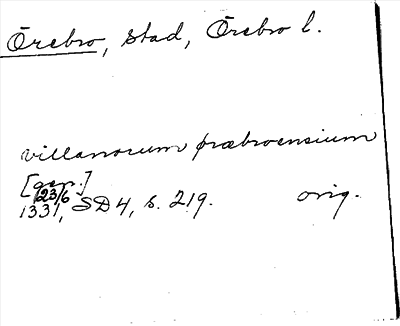 Örebro, stad, Örebro l.
villanorum præbroensium
[gen.]
23/6
1331, SD 4, s. 219. orig.